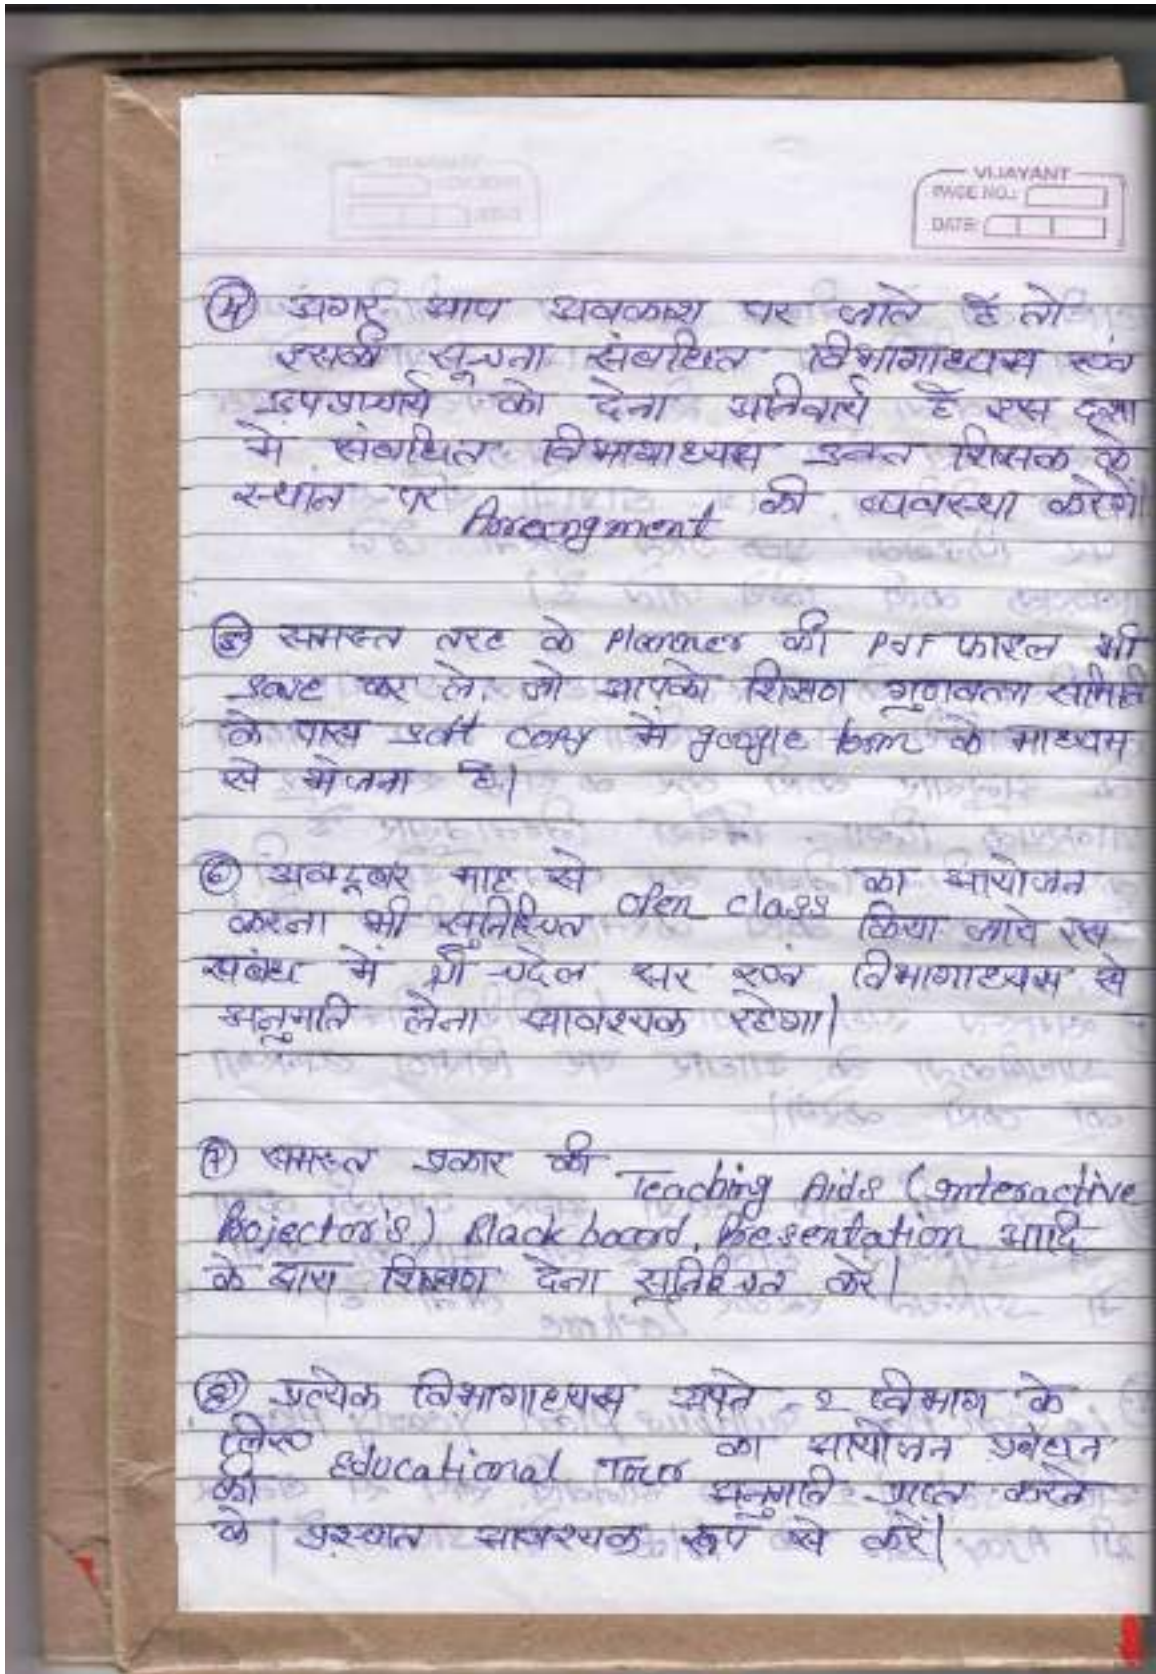 VIJAYANT
PAGE NO.:
DATE:
④ अगर आप अवकाश पर जाते है तो
इसकी सूचना संबधित विभागाध्यक्ष एवं
उपप्राचार्य को देना अनिवार्य है इस दशा
में संबधित विभागाध्यक्ष उक्त शिक्षक के
स्थान पर Arrengment की व्यवस्था करेगे।
⑤ समस्त तरह के Planner की Pdf फाइल भी
save कर ले, जो आपको शिक्षण गुणवत्ता समिति
के पास soft copy में google form के माध्यम
से भेजना है।
⑥ अक्टूबर माह से open class का आयोजन
करना भी सुनिश्चित किया जावे इस
सबंध में श्री चंदेल सर एवं विभागाध्यक्ष से
अनुमति लेना आवश्यक रहेगा।
⑦ समस्त प्रकार की Teaching Aids (Interactive
Projector's) Black board, Presentation आदि
के द्वारा शिक्षण देना सुनिश्चित करे।
⑧ प्रत्येक विभागाध्यक्ष अपने -2 विभाग के
लिए Educational Tour का आयोजन प्रबंधन
की अनुमति प्राप्त करने
के पश्चात आवश्यक रूप से करें।